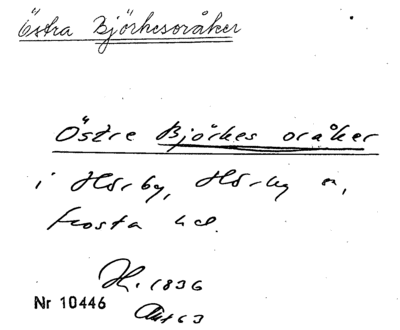 Östra Björkesoråker
Östre Björkes oråker
i Hörby, Hörby sn,
Frosta hd.
H. 1836
Akt 63
Nr 10446